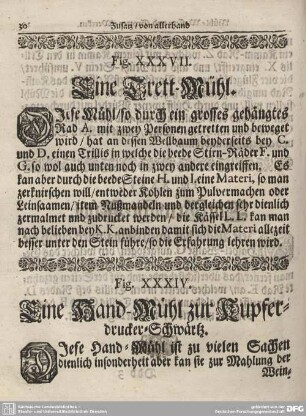 30
Zusatz / von allerhand
Fig. XXXVII.
Eine Trett-Mühl.
DIse Mühl / so durch ein grosses gehängtes
Rad A. mit zwey Personen getretten und beweget
wird / hat an dessen Wellbaum beyderseits bey C.
und D. einen Trillis in welche die beede Stirn-Räder F. und
G. so wol auch unten noch in zwey andere eingreiffen. Es
kan aber durch die beede Steine H. und I. eine Materi, so man
zerknirschen woll / entweder Kohlen zum Pulvermachen oder
Leinsaamen / item Nußmandeln und dergleichen sehr dienlich
zermalmet und zudrucket werden / die Kässel L L. kan man
nach belieben bey K K. anbinden damit sich die Materi allezeit
besser unter den Stein führe / so die Erfahrung lehren wird.
Fig. XXXIV.
Eine Hand-Mühl zur Kupfer-
drucker-Schwärtz.
DIese Hand-Mühl ist zu vielen Sachen
dienlich insonderheit aber kan sie zur Mahlung der
Wein-